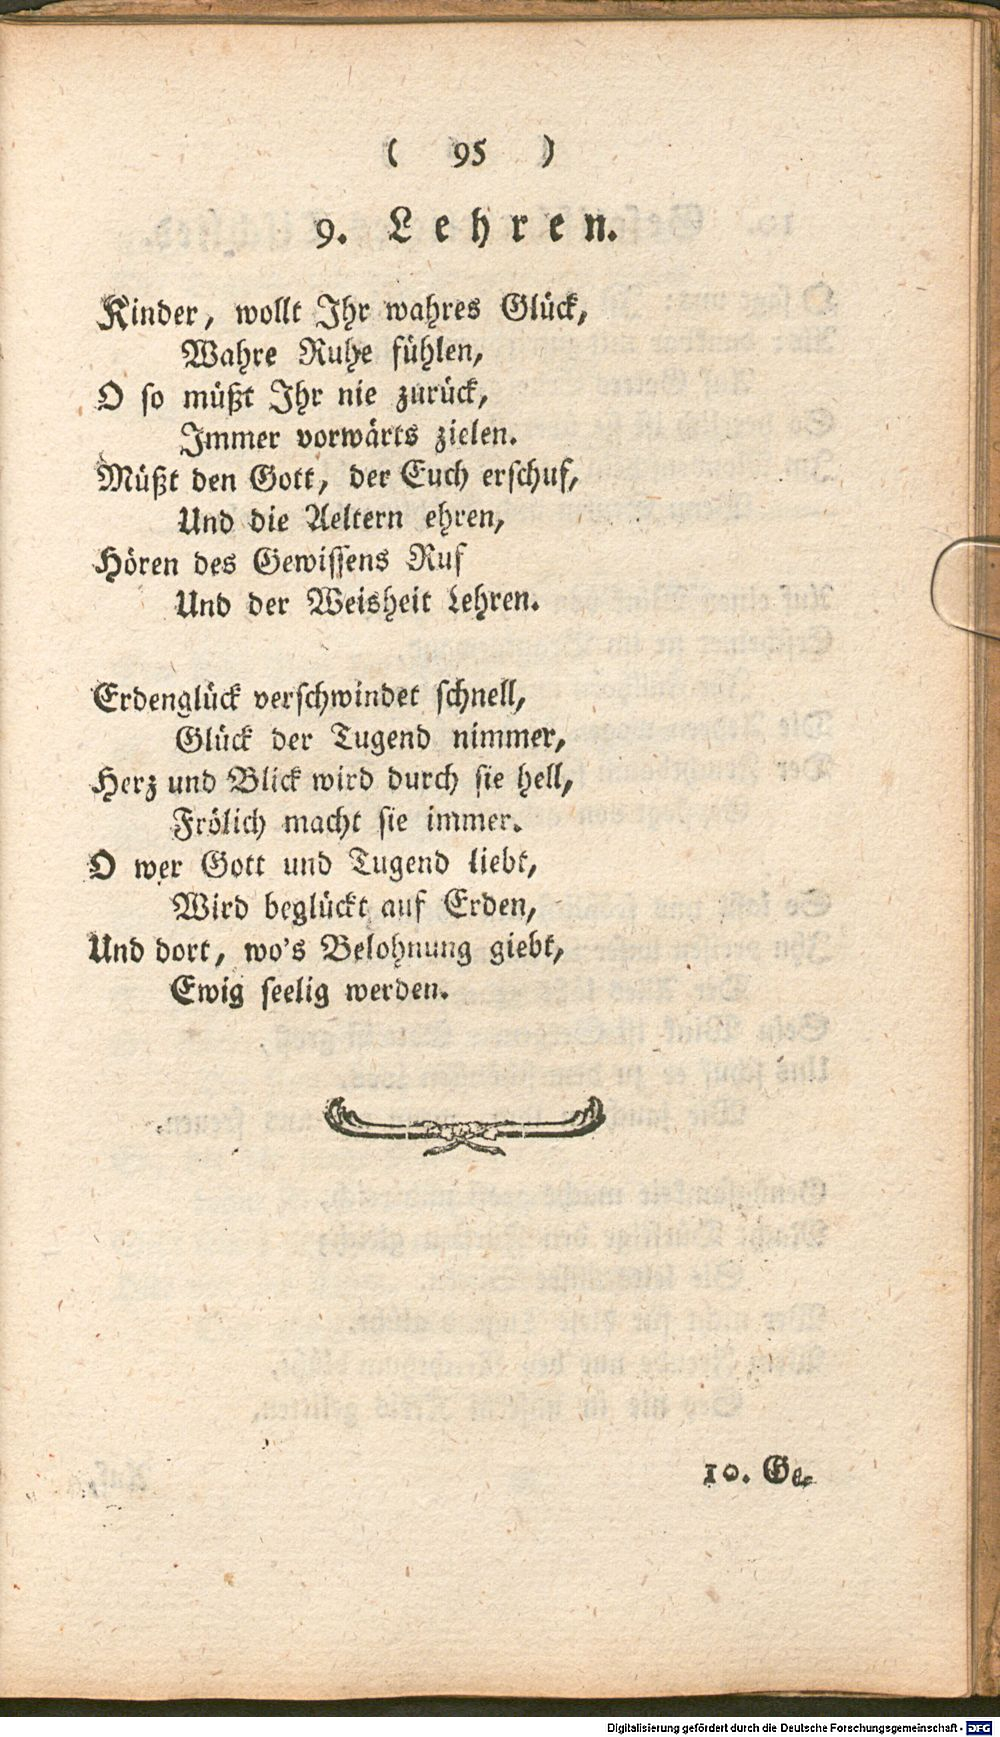 ( 95 )
9. Lehren.
Kinder, wollt Ihr wahres Glück,
Wahre Ruhe fühlen,
O so müßt Ihr nie zurück,
Immer vorwärts zielen.
Müßt den Gott, der Euch erschuf,
Und die Aeltern ehren,
Hören des Gewissens Ruf
Und der Weisheit Lehren.
Erdenglück verschwindet schnell,
Glück der Tugend nimmer,
Herz und Blick wird durch sie hell,
Frölich macht sie immer.
O wer Gott und Tugend liebt,
Wird beglückt auf Erden,
Und dort, wo's Belohnung giebt,
Ewig seelig werden.
10. Ge-
Digitalisierung gefördert durch die Deutsche Forschungsgemeinschaft - DFG